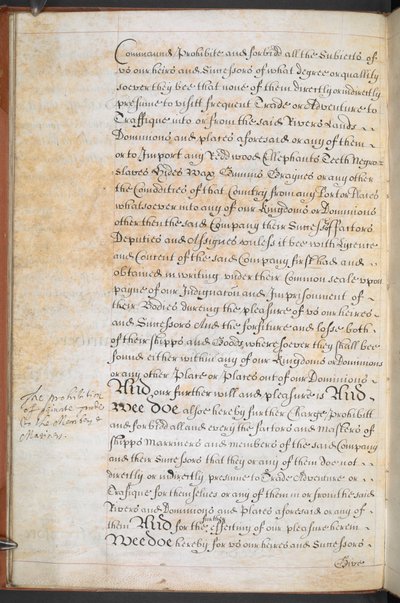 Command Prohibite and forbidd all the Subiects of
vs our heirs and Successors of what degree or quallity
soever they bee that none of them directly or indirectly
presume to visitt frequent Trade or Adventure to
Traffique into or from the said Rivers Lands
Dominions and places aforesaid or any of them
or to Import any Reddwood Ellephants Teeth Negroe
slaves Hides Wax Gumms Graynes or any other
the Comodities of that Country from any Port or Places
whatsoever into any of our Kingdoms or Dominions
other then the said Company their Successors ffactors
Deputies and Assignes unless it bee with Lycence
and Consent of the said Company first had and
obtained in writing under their Common seale vpon
payne of our Indignation and Imprisonment of
their Bodies dureing the pleasure of vs our heires
and Successors And the forfiture and losse both
of their shipps and Goods wheresoever they shall bee
found either within any of our Kingdoms or Dominions
or any other Place or Places out of our Dominions
And our further will and pleasure is And
Wee doe alsoe hereby further Charge Prohibitt
and forbidd all and every the factors and Masters of
shipps Marriners and members of the said Company
and their Successors that they or any of them doe not
directly or indirectly presume to Trade Adventure or
Traffique for themselves or any of them in or from the said
Rivers and Dominions and Places aforesaid or any of
them And for the further effecting of our pleasure herein
Wee doe hereby for vs our heires and Successors
Give
The prohibition
of private Trade
to the members &
Mariners.